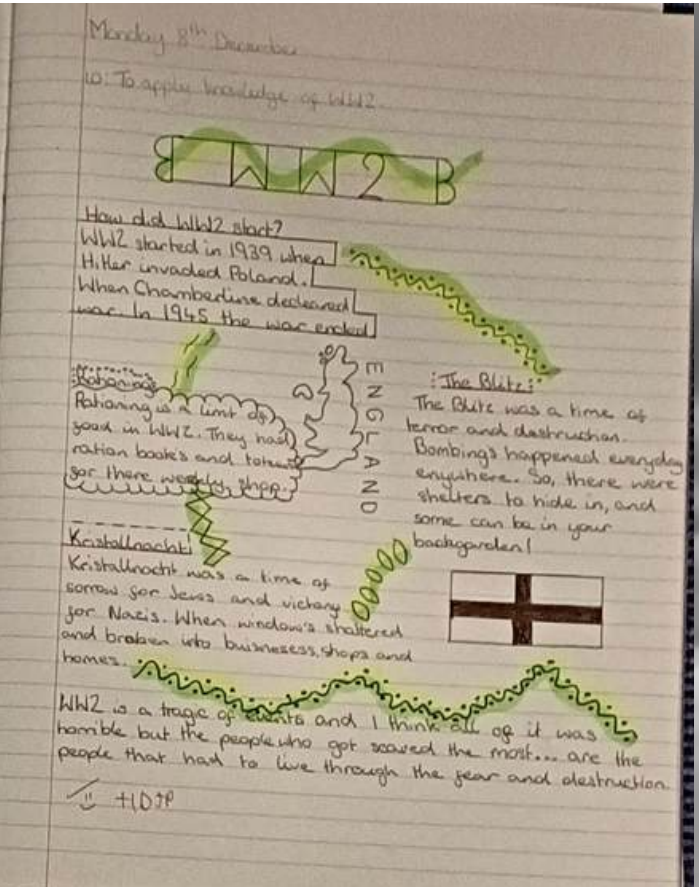 Monday 8th December
LO: To apply knowledge of WW2
WW2
How did WW2 start?
WW2 started in 1939 when
Hitler invaded Poland.
When Chamberline decleared
war. In 1945 the war ended
Rationing
Rationing is a limit of
food in WW2. They had
ration books and
for there weekly shop.
ENGLAND
The Blitz:
The Blitz was a time of
terror and destruction.
Bombings happened everyday
enywhere. So, there were
shelters to hide in, and
some can be in your
backgarden!
Kristallnacht
Kristallnocht was a time of
sorrow for Jews and victory
for Nazis. When window's shattered
and broken into buisnesess, shops and
homes.
WW2 is a tragic of events and I think all of it was
horrible but the people who got scared the most... are the
people that had to live through the fear and destruction.